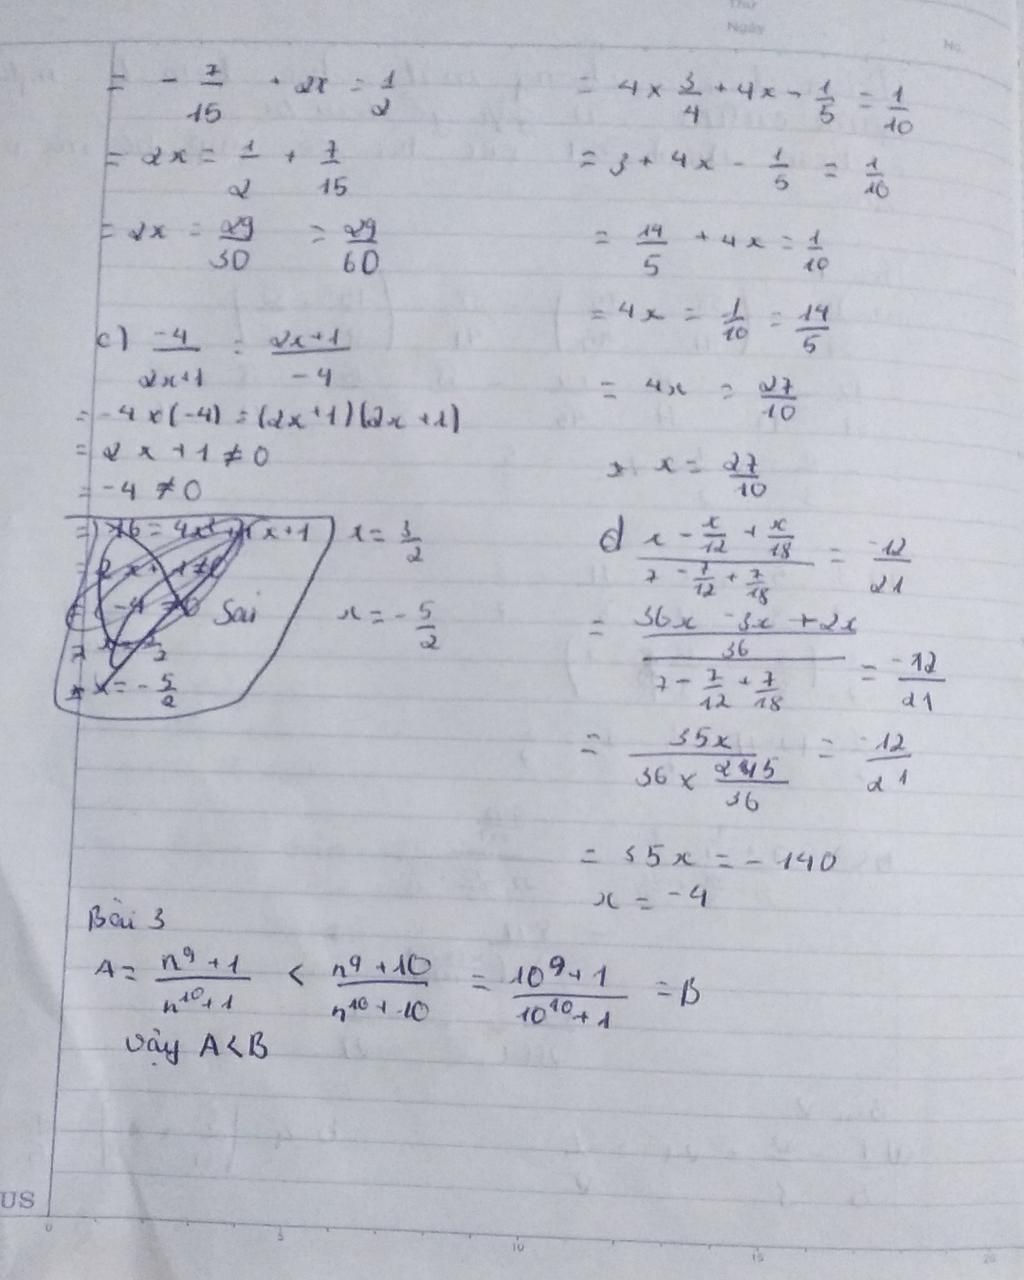 Thứ
Ngày
No.
= - 7/15 + 2x = 1/2
= 2x = 1/2 + 7/15
= 2x = 29/30 = 29/60
c) -4/2x+1 = 2x+1/-4
= -4 x (-4) = (2x+1)(2x+1)
= 2x+1 ≠ 0
= -4 ≠ 0
Sai
x = - 5/2
x = 3/2
x = - 5/2
= 4 x 3/4 + 4x - 1/5 = 1/10
= 3 + 4x - 1/5 = 1/10
= 14/5 + 4x = 1/10
= 4x = 1/10 = 14/5
= 4x = 27/10
x = 27/10
d x - x/12 + x/18 / 7 - 7/12 + 7/18 = -12/21
= 36x - 3x + 2x / 36 / 7 - 7/12 + 7/18 = -12/21
= 35x / 36 x 245/36 = -12/21
= 35x = -140
x = -4
Bài 3
A = n⁹+1/n¹⁰+1 < n⁹+10/n¹⁰+10 = 10⁹+1/10¹⁰+1 = B
vậy A<B
US
0 5 10 15 20